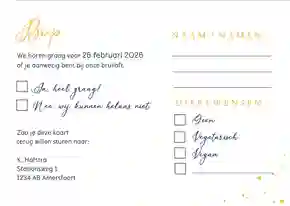 Rsvp
We horen graag voor 26 februari 2026
of je aanwezig bent bij onze bruiloft.
Ja, heel graag!
Nee, wij kunnen helaas niet
Zou je deze kaart
terug willen sturen naar:
Stationsweg 1
1234 AB Amersfoort
NAAM / NAMEN:
DIEETWENSEN:
Geen
Vegetarisch
Vegan